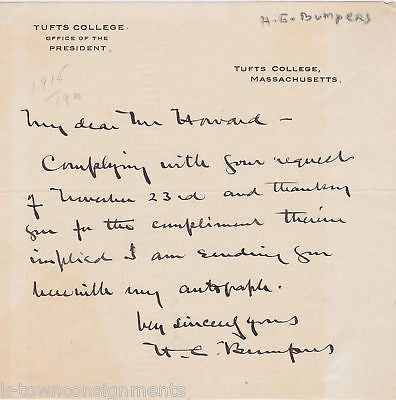 TUFTS COLLEGE.
OFFICE OF THE
PRESIDENT.
H. E. BUMPERS
TUFTS COLLEGE,
MASSACHUSETTS.
1915
My dear Mr Howard –
Complying with your request
of November 23rd and thanking
you for the compliment therein
implied I am sending you
herewith my autograph.
Very sincerely yours
H. C. Bumpus
k-townconsignments